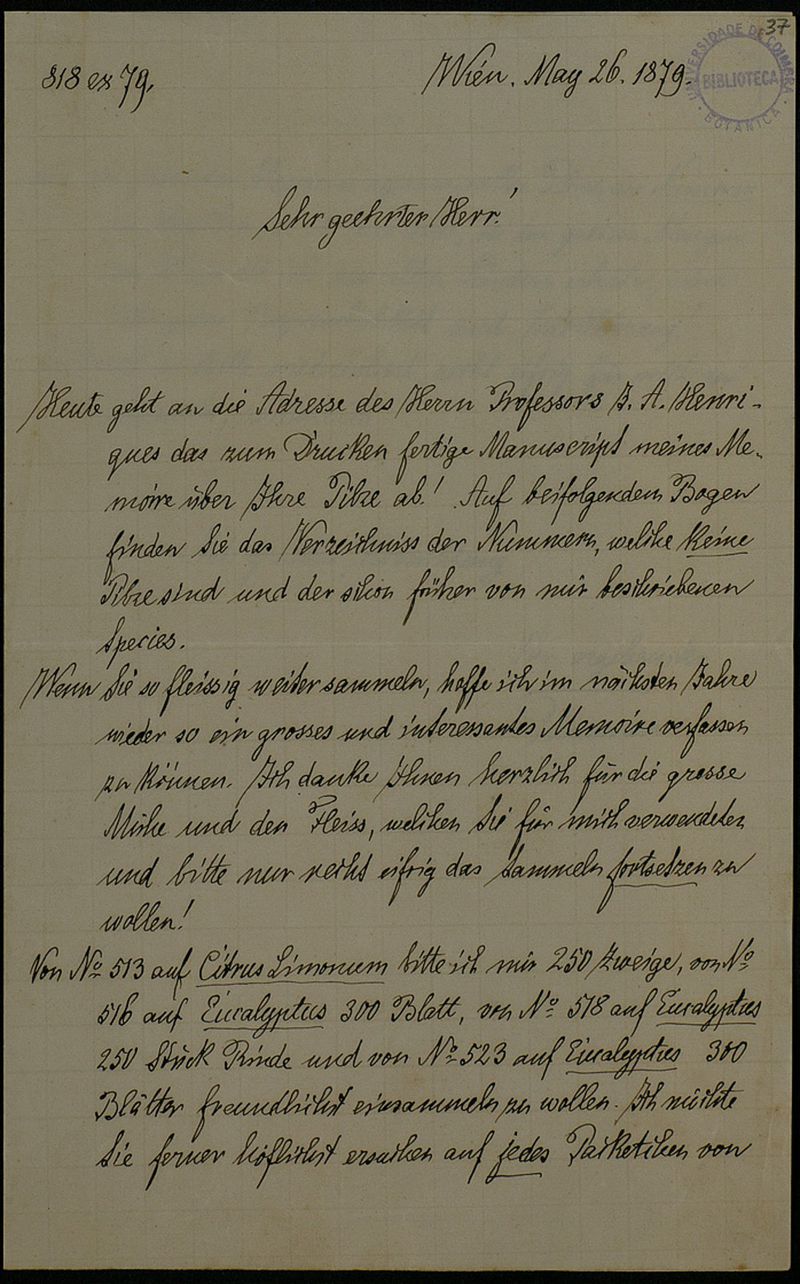 37
UNIVERSIDADE DE COIMBRA
BIBLIOTECA
BOTANICA
818 ex 79.
Wién. May 26. 1879.
Sehr geehrter Herr!
Heute geht an die Adresse des Herrn Professors J. A. Henri-
ques das zum Drucken fertige Manuscript meines Me-
moire über Ihre Pilze ab! Auf beifolgendem Bogen
finden Sie das Verzeichniss der Nummern, welche keine
Pilze sind und der schon früher von mir beschriebenen
Species.
Wenn Sie so fleissig weiter sammeln, hoffe ich im nächsten Jahre
wieder so ein grosses und interessantes Memoire verfassen
zu können. Ich danke Ihnen herzlich für die grosse
Mühe und den Fleiss, welchen Sie für mich verwendeten
und bitte nur recht eifrig das Sammeln fortsetzen zu
wollen!
Von No 513 auf Citrus Limonum bitte ich mir 250 Zweige, von No
516 auf Eucalyptus 300 Blatt, von No 518 auf Eucalyptus
250 Stück Rinde und von No 523 auf Eucalyptus 300
Blätter freundlichst einsammeln zu wollen. Ich möchte
Sie ferner höflichst ersuchen auf jedes Packetchen von